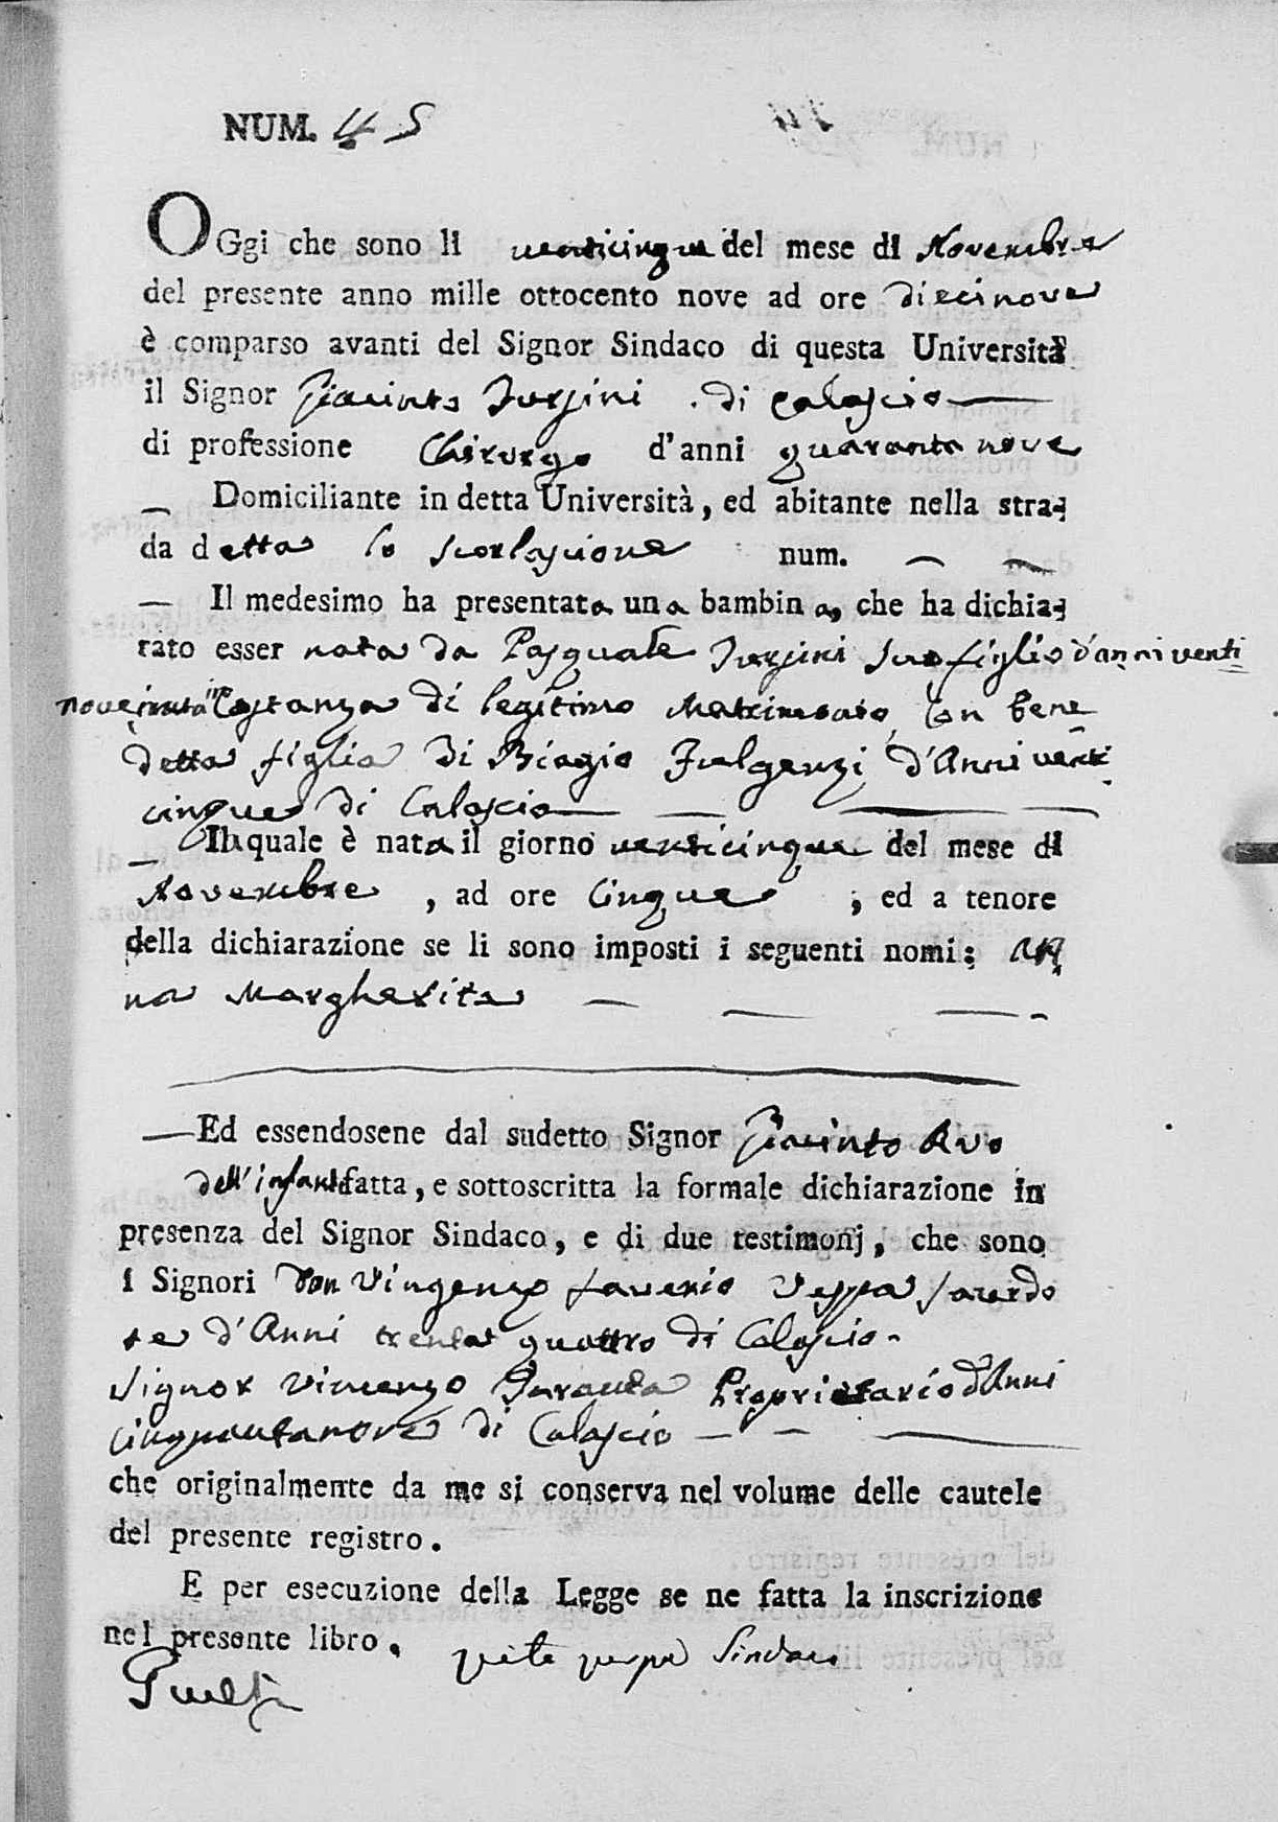 NUM. 45
OGgi che sono li venticinque del mese di Novembre
del presente anno mille ottocento nove ad ore diecinove
è comparso avanti del Signor Sindaco di questa Università
il Signor Giacinto di Calascio
di professione Chirurgo d'anni quarantanove
Domiciliante in detta Università, ed abitante nella stra-
da detta lo num.
Il medesimo ha presentata una bambina, che ha dichia-
rato esser nata da Pasquale suo figlio d'anni venti
nove in Costanza di legitimo Matrimonio con Bene
detta figlia di Biagio Fulgenzi d'Anni venti
cinque di Calascio
La quale è nata il giorno venticinque del mese di
Novembre, ad ore Cinque; ed a tenore
della dichiarazione se li sono imposti i seguenti nomi: An
na Margherita
Ed essendosene dal sudetto Signor Giacinto Avo
dell'infante fatta, e sottoscritta la formale dichiarazione in
presenza del Signor Sindaco, e di due testimonj, che sono
i Signori Don Vingenzo Saverio Sacerdo
te d'Anni trenta quattro di Calascio.
Signor Vincenzo Proprietario d'Anni
cinquantanove di Calascio
che originalmente da me si conserva nel volume delle cautele
del presente registro.
E per esecuzione della Legge se ne fatta la inscrizione
nel presente libro. Sindaco